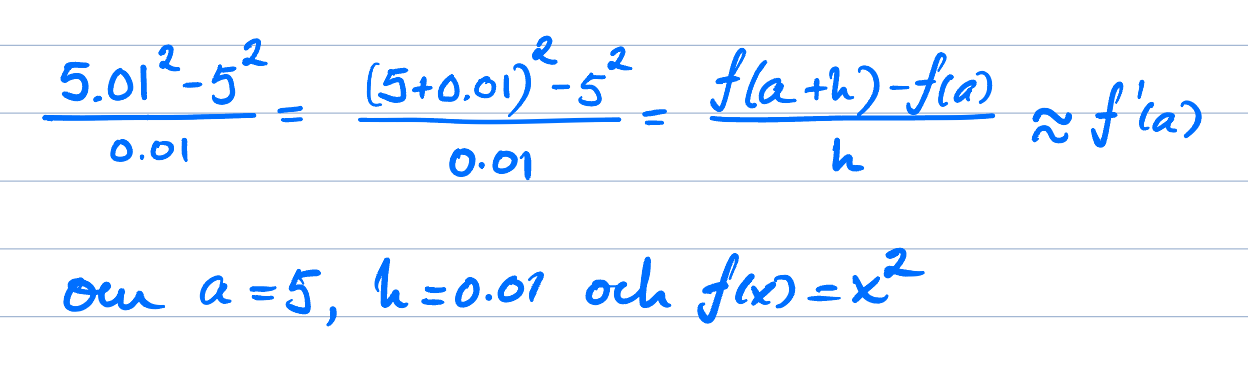 (5.01² - 5²)/0.01 = ((5+0.01)² - 5²)/0.01 = (f(a+h) - f(a))/h ≈ f'(a)
om a = 5, h = 0.01 och f(x) = x²